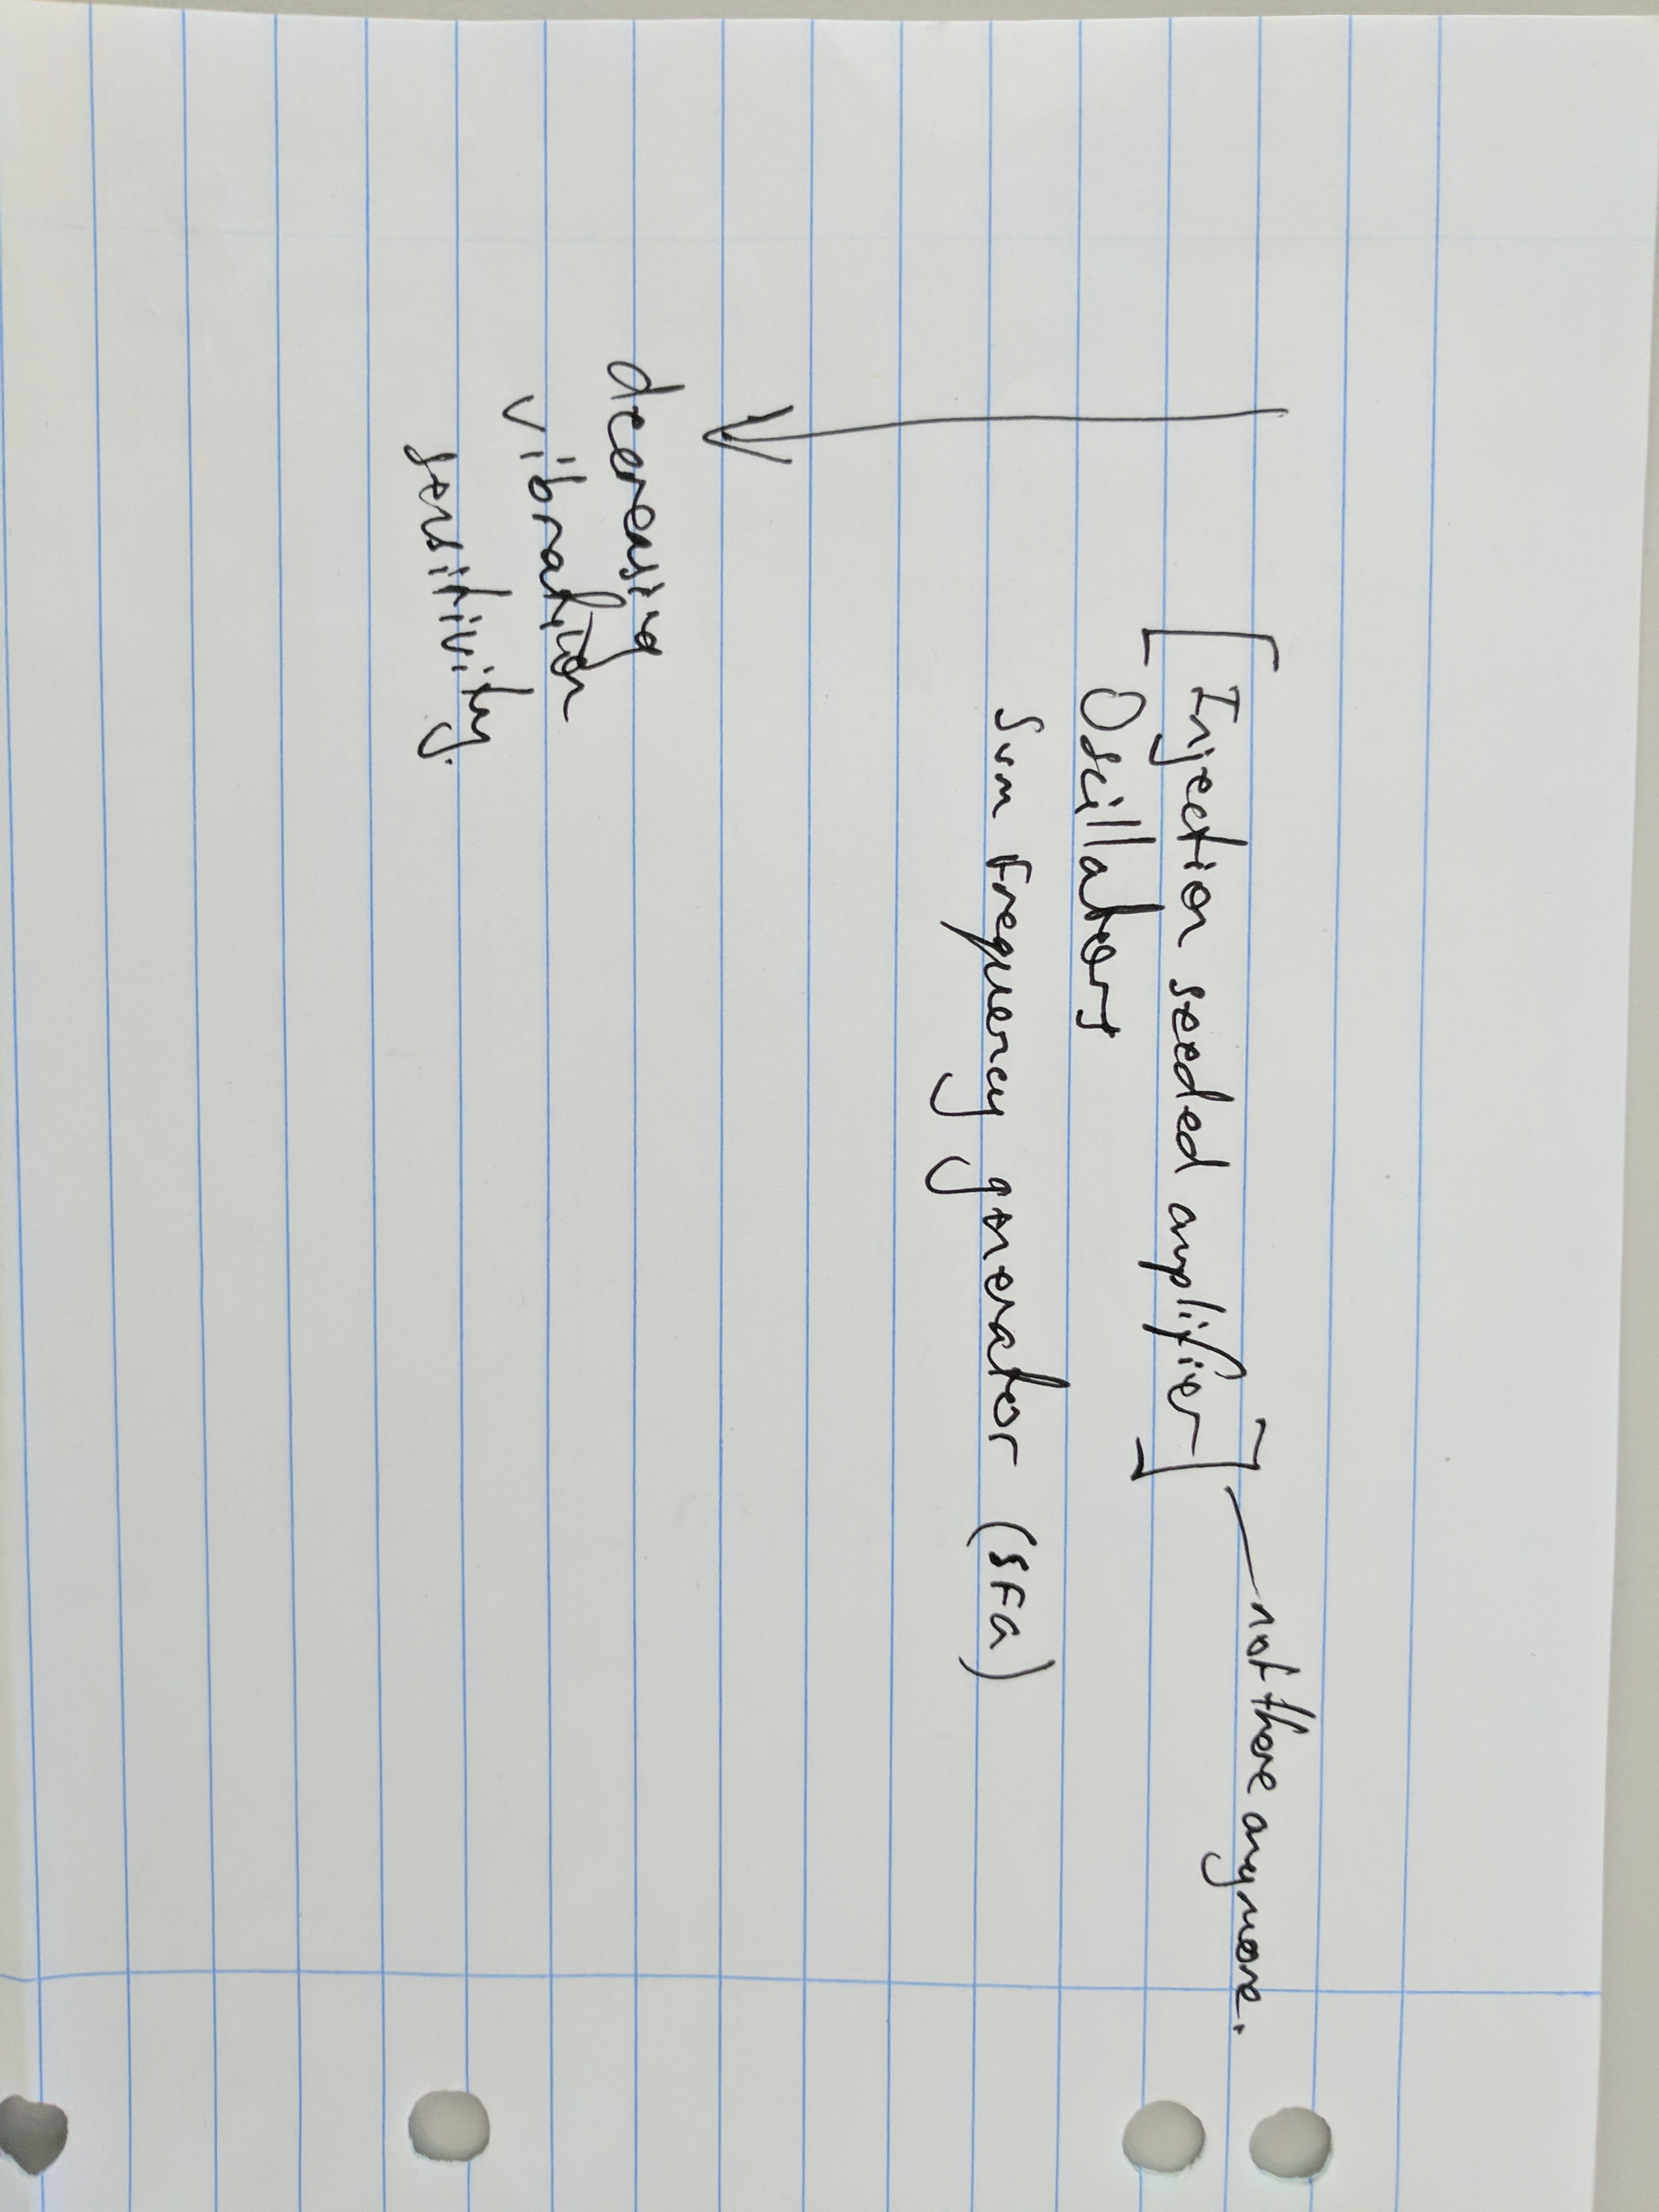 [Injection seeded amplifier] — not there anymore.
Oscillators
Sum Frequency generator (SFG)
decreasing
vibration
sensitivity.